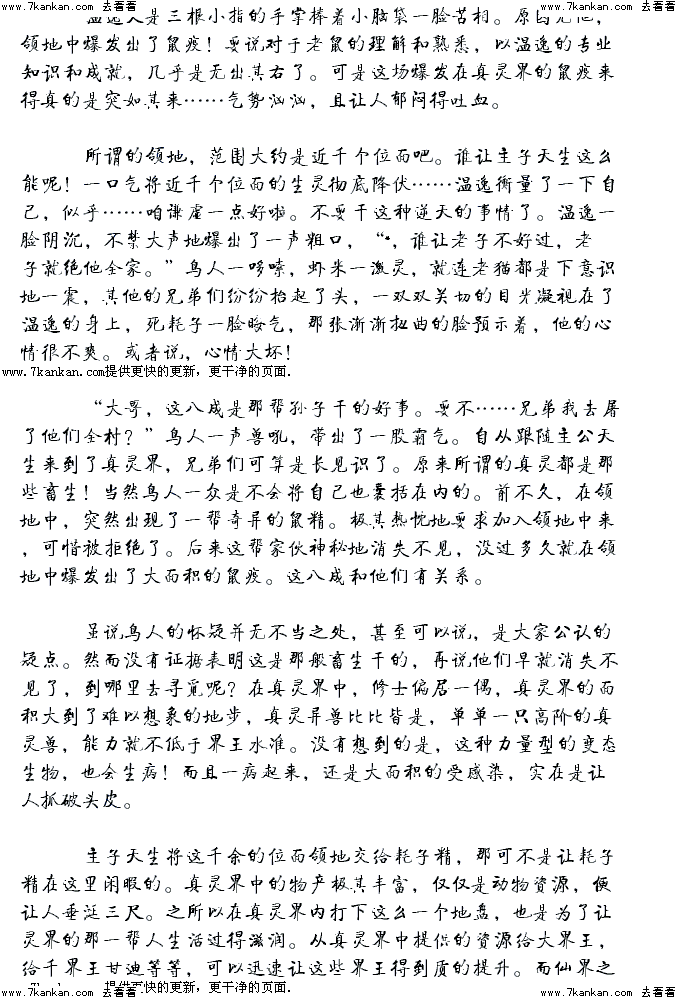 www.7kankan.com 去看看 www.7kankan.com 去看看 www.7kankan.com 去看看 www.7kankan.com 去看看
温逸又是三根小指的手掌捧着小脑袋一脸苦相。原因无他，
领地中爆发出了鼠疫！要说对于老鼠的理解和熟悉，以温逸的专业
知识和成就，几乎是无出其右了。可是这场爆发在真灵界的鼠疫来
得真的是突如其来……气势汹汹，且让人郁闷得吐血。
所谓的领地，范围大约是近千个位面吧。谁让主子天生这么
能呢！一口气将近千个位面的生灵彻底降伏……温逸衡量了一下自
己，似乎……咱谦虚一点好啦。不要干这种逆天的事情了。温逸一
脸阴沉，不禁大声地爆出了一声粗口，“*，谁让老子不好过，老
子就绝他全家。”鸟人一哆嗦，虾米一激灵，就连老猫都是下意识
地一震，其他的兄弟们纷纷抬起了头，一双双关切的目光凝视在了
温逸的身上，死耗子一脸晦气，那张渐渐扭曲的脸预示着，他的心
情很不爽。或者说，心情大坏！
www.7kankan.com提供更快的更新，更干净的页面．
“大哥，这八成是那帮孙子干的好事。要不……兄弟我去屠
了他们全村？”鸟人一声兽吼，带出了一股霸气。自从跟随主公天
生来到了真灵界，兄弟们可算是长见识了。原来所谓的真灵都是那
些畜生！当然鸟人一众是不会将自己也囊括在内的。前不久，在领
地中，突然出现了一帮奇异的鼠精。极其热忱地要求加入领地中来
，可惜被拒绝了。后来这帮家伙神秘地消失不见，没过多久就在领
地中爆发出了大面积的鼠疫。这八成和他们有关系。
虽说鸟人的怀疑并无不当之处，甚至可以说，是大家公认的
疑点。然而没有证据表明这是那般畜生干的，再说他们早就消失不
见了，到哪里去寻觅呢？在真灵界中，修士偏居一偶，真灵界的面
积大到了难以想象的地步，真灵异兽比比皆是，单单一只高阶的真
灵兽，能力就不低于界王水准。没有想到的是，这种力量型的变态
生物，也会生病！而且一病起来，还是大面积的受感染，实在是让
人抓破头皮。
主子天生将这千余的位面领地交给耗子精，那可不是让耗子
精在这里闲暇的。真灵界中的物产极其丰富，仅仅是动物资源，便
让人垂涎三尺。之所以在真灵界内打下这么一个地盘，也是为了让
灵界的那一帮人生活过得滋润。从真灵界中提供的资源给大界王，
给千界王甘迪等等，可以迅速让这些界王得到质的提升。而仙界之
提供更快的更新，更干净的页面．
www.7kankan.com 去看看 www.7kankan.com 去看看 www.7kankan.com 去看看 www.7kankan.com 去看看